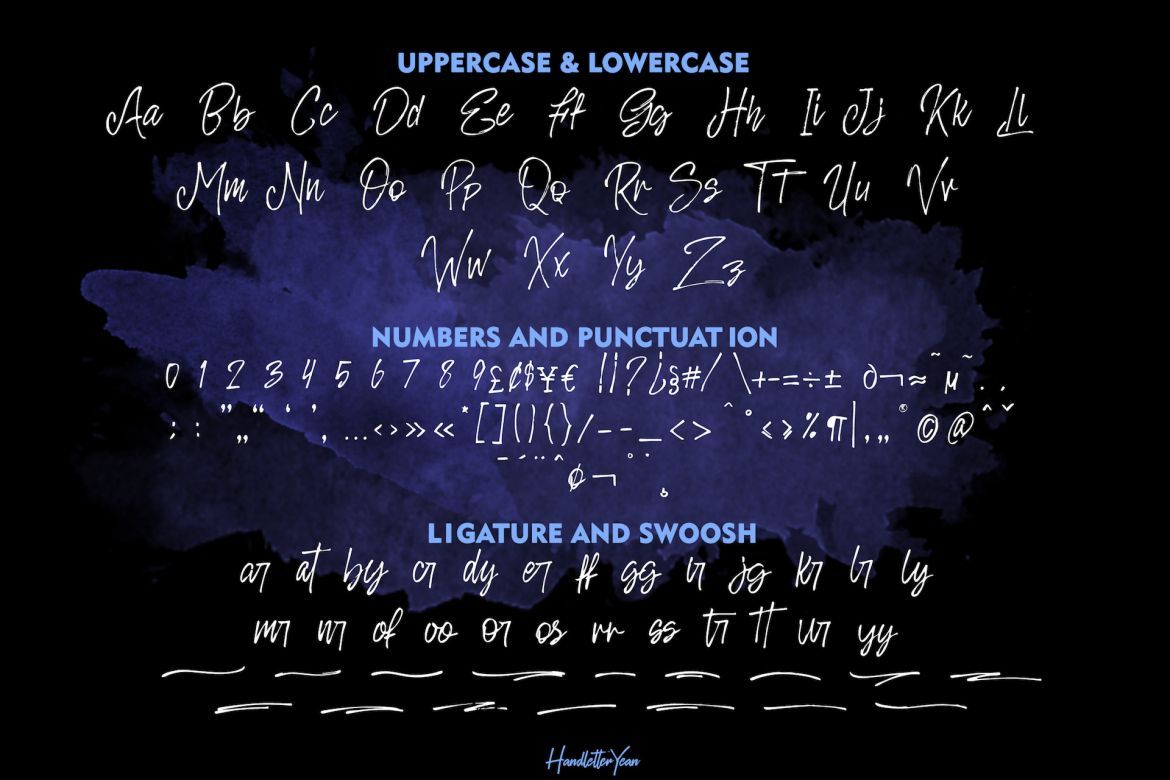 UPPERCASE & LOWERCASE
Aa Bb Cc Dd Ee Ff Gg Hh Ii Jj Kk Ll
Mm Nn Oo Pp Qq Rr Ss Tt Uu Vv
Ww Xx Yy Zz
NUMBERS AND PUNCTUATION
0 1 2 3 4 5 6 7 8 9 £ ₡ $ ¥ € ! ¦ ? ¿ § # / \ + - = ÷ ± ∂ ¬ ≈ ~ µ ~ . .
; : ” „ “ ‘ ’ , … ‹ › » « * [ ] ( ) { } / – - _ < > ^ ° ‹ › % ¶ | , „ ® © @ ˆ ˇ
¯ ´ ¨ ˆ ° ˙
¬ ¸
LIGATURE AND SWOOSH
ar at by cr dy er ff gg ir jg kr lr ly
mr nr of oo or os rr ss tr tt ur yy
HandletterYean